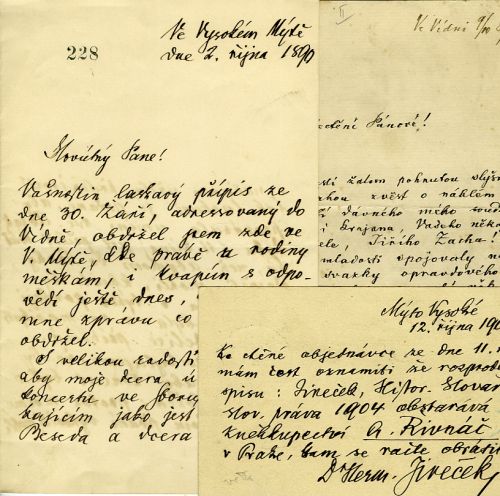 228
Ve Vysokém Mýtě
dne 2. října 1890
Slovutný Pane!
Vašnostin laskavý přípis ze
dne 30. Září, adressovaný do
Vídně, obdržel jsem zde ve
V. Mýtě, kde právě u rodiny
meškám, i kvapím s odpo-
vědí ještě dnes,
mne zprávu co
obdržel.
S velikou radostí
aby moje dcera, ú
koncertu ve sboru
kajícím jako jest
Beseda a dcera
II
Ve Vídni 9/10
ctění Pánové!
stí žalem pohnutou slyš
zvěst o náhlém
dávného mého
i krajana, Vašeho něko
Jiřího Zacha!
mladosti spojovaly n
svazky opravdového
Mýto Vysoké
12. října 190
Ku ctěné objednávce ze dne 11.
mám čest oznámiti že rozprod
spisu: Jireček, Histor. Slovar
slov. práva 1904 obstarává
knihkupectví A. Rivnáč
v Praze, tam se račte obrátit
Dr Herm. Jireček